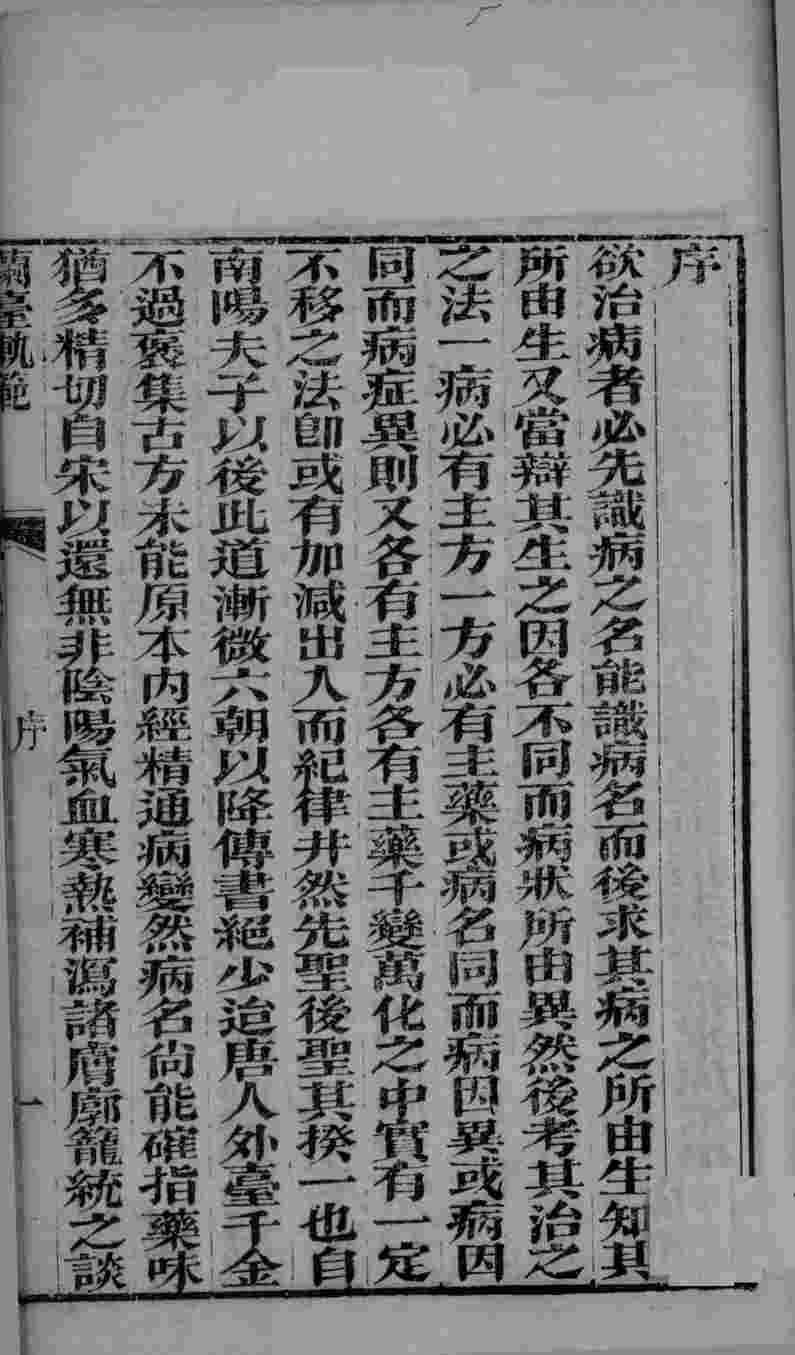 序
欲治病者必先識病之名能識病名而後求其病之所由生知其
所由生又當辯其生之因各不同而病狀所由異然後考其治之
之法一病必有主方一方必有主藥或病名同而病因異或病因
同而病症異則又各有主方各有主藥千變萬化之中實有一定
不移之法卽或有加減出入而紀律井然先聖後聖其揆一也自
南陽夫子以後此道漸微六朝以降傳書絕少迨唐人外臺千金
不過裒集古方未能原本內經精通病變然病名尙能確指藥味
猶多精切自宋以還無非陰陽氣血寒熱補瀉諸膚廓籠統之談
蘭臺軌範
序
一